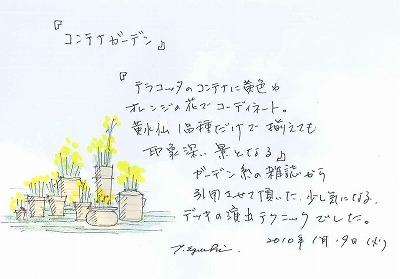 『コンテナガーデン』
『テラコッタのコンテナに黄色や
オレンジの花でコーディネート。
黄水仙1品種だけで揃えても
印象深い景となる』
ガーデン系の雑誌から
引用させて頂いた、少し気になる、
デッキの演出テクニックでした。
2010年1月19日(火)